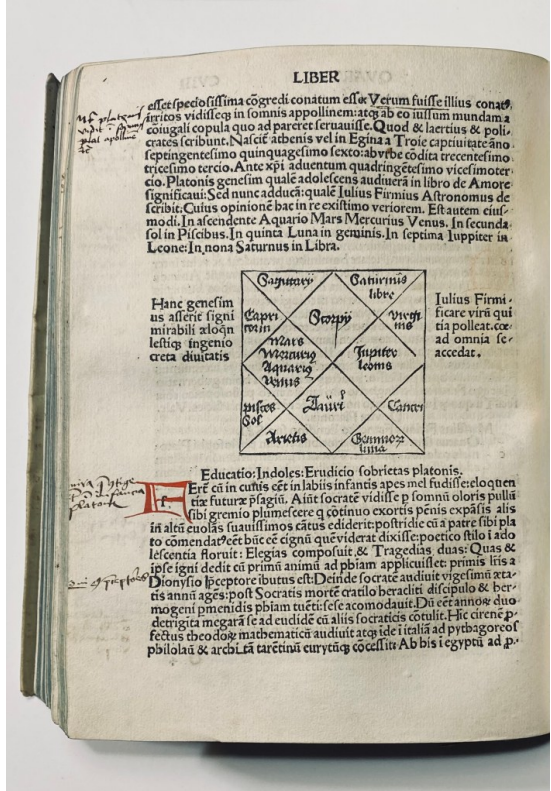 LIBER
esset speciosissima cõgredi conatum esse: Verum fuisse illius conatꝰ
irritos vidisseqȝ in somnis appollinem: atqȝ ab eo iussum mundam a
cõiugali copula quo ad pareret seruauisse. Quod & laertius & poli-
crates scribunt. Nascit̃ athenis vel in Egina a Troie captiuitate ãno
septingentesimo quinquagesimo sexto: ab vrbe cõdita trecentesimo
tricesimo tercio. Ante xp̃i aduentum quadringẽtesimo vicesimoter-
cio. Platonis genesim qualẽ adolescens audiuerã in libro de Amore
significaui: Sed nunc adducã: qualẽ Iulius Firmius Astronomus de
scribit. Cuius opinionẽ hac in re existimo veriorem. Est autem eius-
modi. In ascendente Aquario Mars Mercurius Venus. In secunda
sol in Piscibus. In quinta Luna in geminis. In septima Iuppiter in
Leone: In nona Saturnus in Libra.
Sagittarij
Saturnus
libre
Hanc genesim
us asserit signi
mirabili
lestiqȝ ingenio
creta diuitatis
Capri
corin
Scorpij
virgi
nis
Mars
Mercurꝰ
Aquarij
venus
Iupiter
leonis
Iulius Firmi-
ficare virũ qui
tia polleat. cœ
ad omnia se-
accedat.
pisces
Sol
Tauri
Cancri
Arietis
Geminoꝝ
luna
Educatio: Indoles: Erudicio sobrietas platonis.
FErẽ cũ in cunis cẽt in labiis infantis apes mel fudisse: eloquen
tiæ futuræ p̃sagiũ. Aiũt socratẽ vidisse ꝑ somnũ oloris pullũ
sibi gremio plumescere q̃ cõtinuo exortis pẽnis expãsis alis
in altũ euolãs suauissimos cãtus ediderit: postridie cũ a patre sibi pla
to cõmendatꝰ cẽt hũc eẽ cignũ quẽ viderat dixisse: poetico stilo i ado
lescentia floruit: Elegias composuit, & Tragedias duas: Quas &
ipse igni dedit cũ primũ animũ ad ph̃iam applicuisset: primis lr̃is a
Dionysio p̃ceptore ibutus est: Deinde socratẽ audiuit vigesimũ æta-
tis annũ agẽs: post Socratis mortẽ cratilo heracliti discipulo & her-
mogeni pmenidis ph̃iam tuẽti: sese acomodauit. Dũ cẽt annoꝝ duo
detrigita megarã se ad euclidẽ cũ aliis socraticis cõtulit. Hic cirenẽ ꝓ-
fectus theodoꝝ mathematicũ audiuit atqȝ ide i italiã ad pythagoreos
philolaũ & archi.tã tarẽtinũ eurytũqȝ cõcessit: Ab his i egyptũ ad ꝓ-